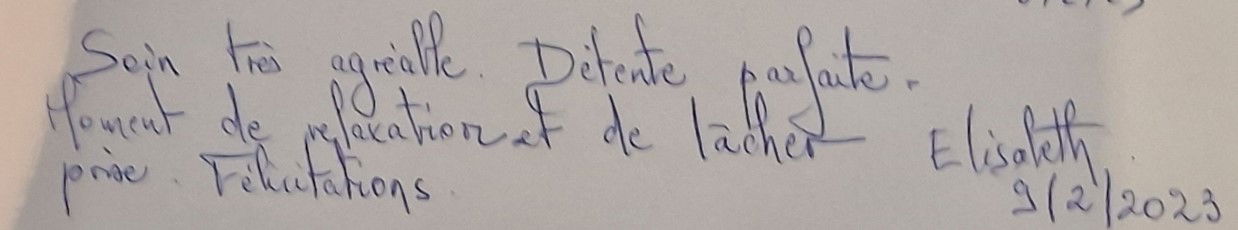 Soin très agréable. Détente parfaite.
Moment de relaxation et de lâcher
prise. Félicitations.
Elisabeth.
9/2/2023